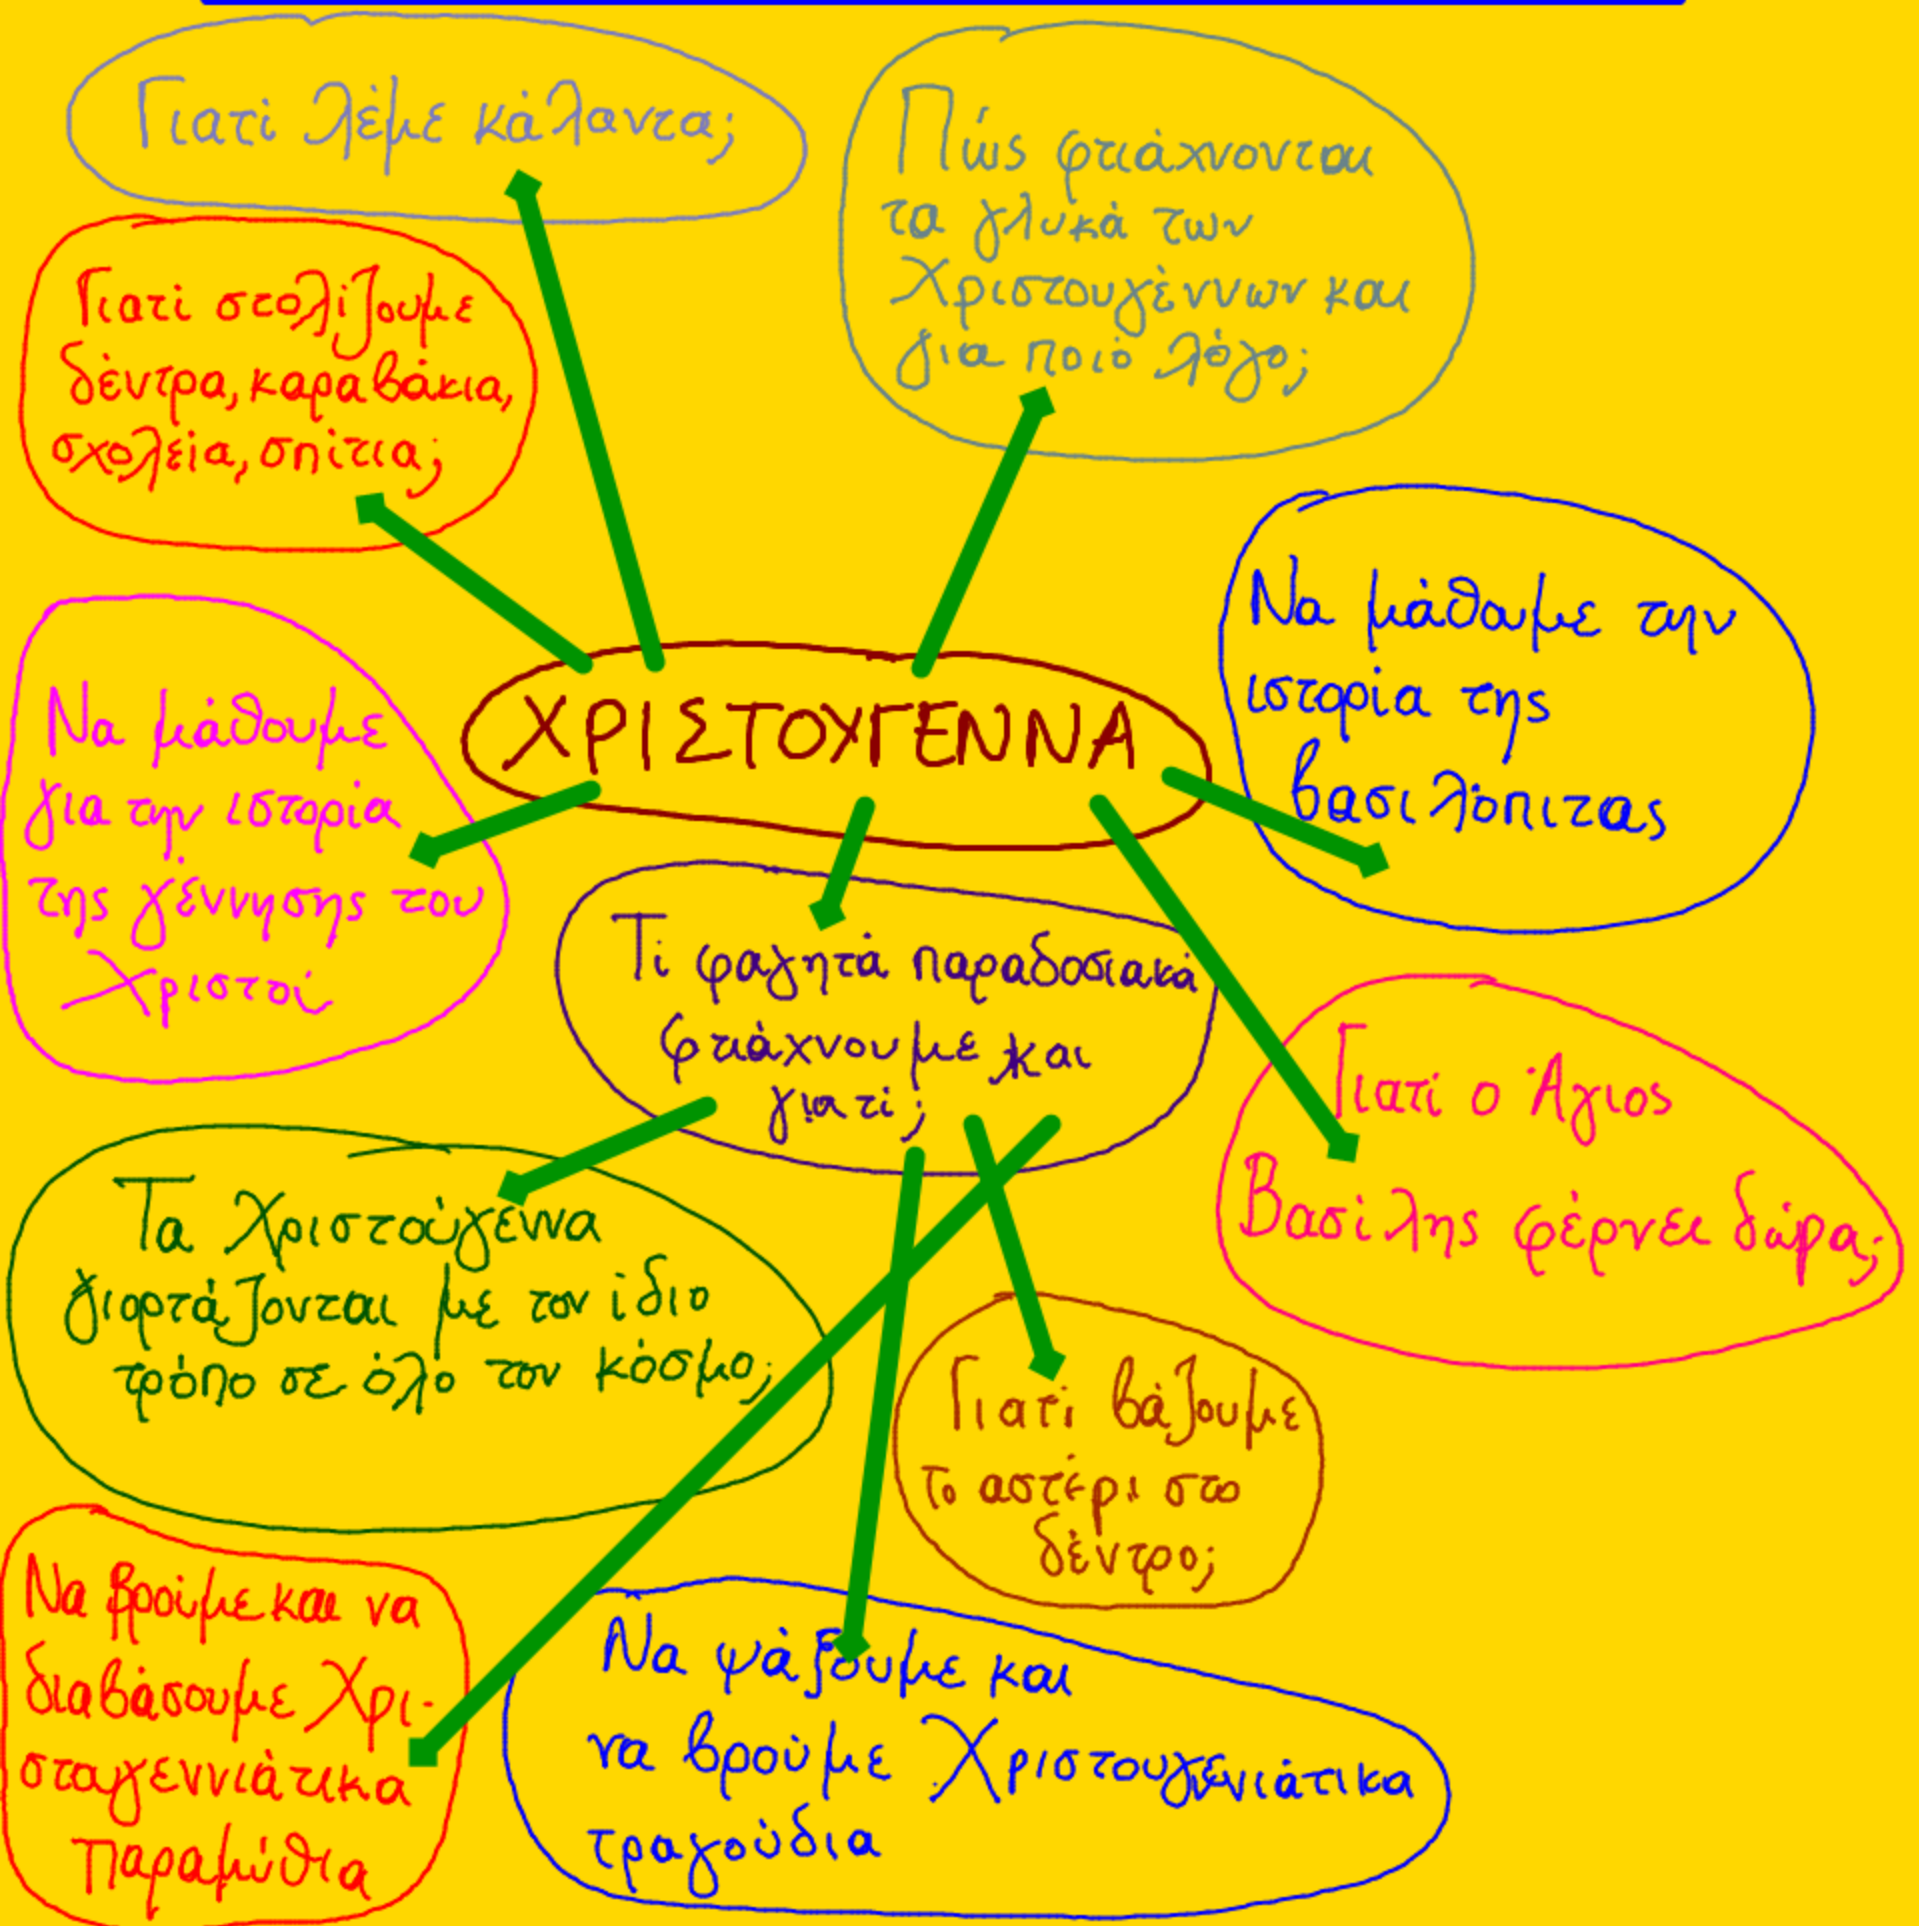 Γιατί λέμε κάλαντα;
Πώς φτιάχνονται
τα γλυκά των
Χριστουγέννων και
για ποιό λόγο;
Γιατί στολίζουμε
δέντρα, καραβάκια,
σχολεία, σπίτια;
Να μάθουμε την
ιστορία της
βασιλόπιτας
ΧΡΙΣΤΟΥΓΕΝΝΑ
Να μάθουμε
για την ιστορία
της γέννησης του
Χριστού
Τί φαγητά παραδοσιακά
φτιάχνουμε και
γιατί;
Γιατί ο Άγιος
Βασίλης φέρνει δώρα;
Τα Χριστούγεννα
γιορτάζονται με τον ίδιο
τρόπο σε όλο τον κόσμο;
Γιατί βάζουμε
το αστέρι στο
δέντρο;
Να βρούμε και να
διαβάσουμε Χρι-
στουγεννιάτικα
παραμύθια
Να ψάξουμε και
να βρούμε Χριστουγενιάτικα
τραγούδια